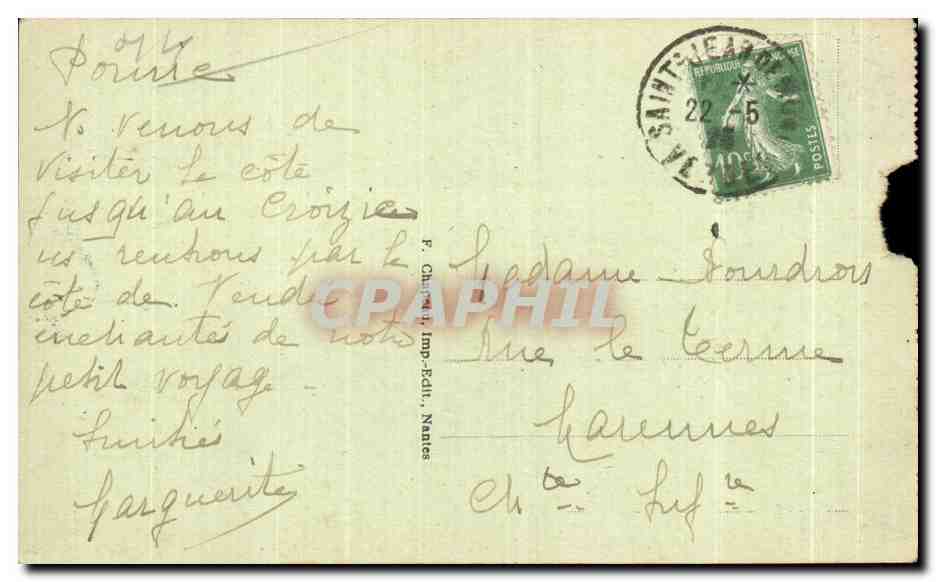 Pornic
N. venons de
visiter la côte
jusqu'au Croizic
ns rentrons par la
côte de Vendée
enchantés de notre
petit voyage.
Amitiés
Marguerite
F. Chapeau, Imp.-Edit., Nantes
CPAPHIL
REPUBLIQUE FRANÇAISE
10c
POSTES
SAINT-JEAN
22 -5
Madame
Rue le Terme
Marennes
Chte Infre